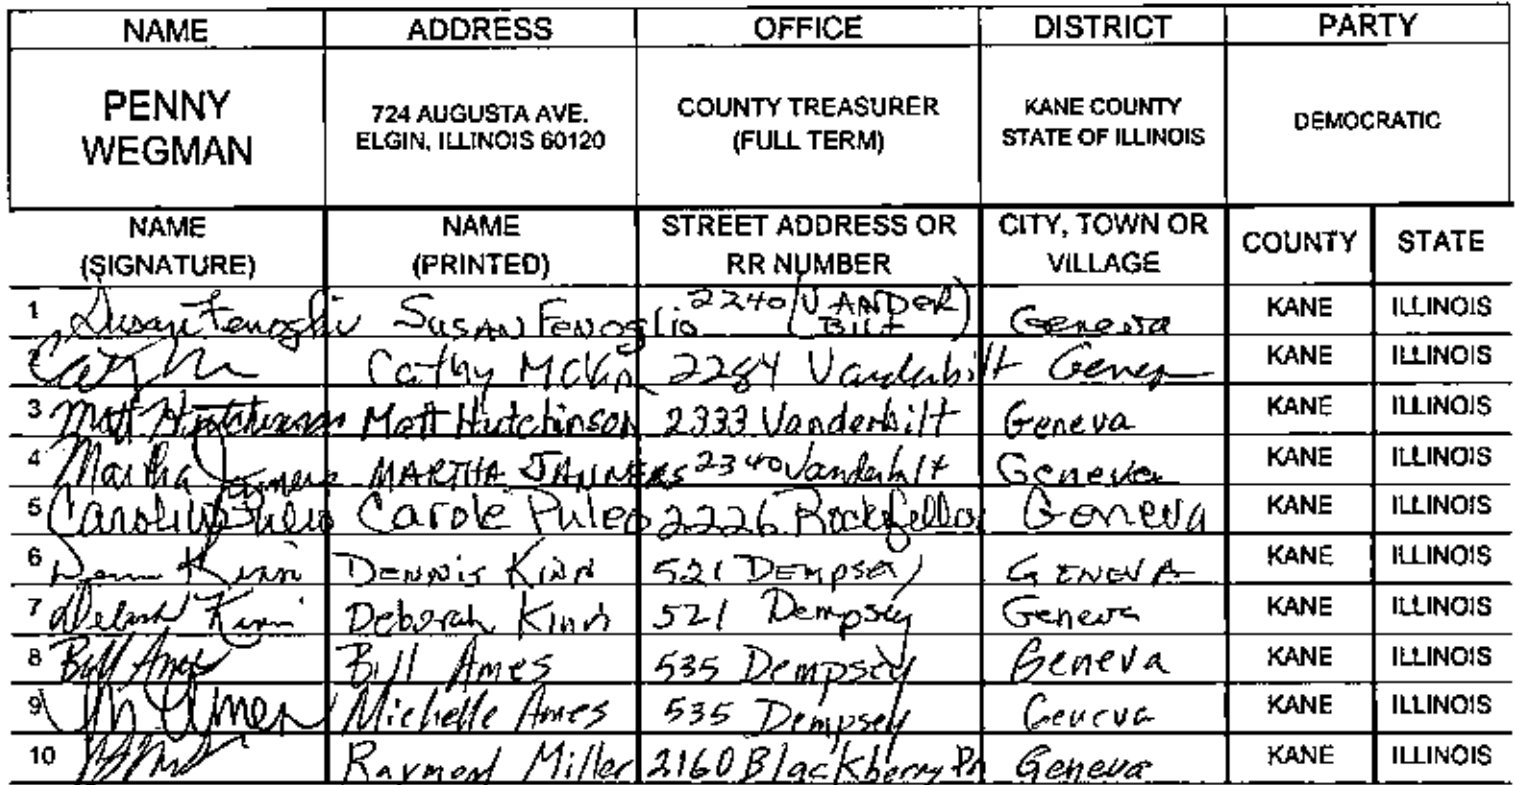 NAME ADDRESS OFFICE DISTRICT PARTY
PENNY WEGMAN 724 AUGUSTA AVE. ELGIN, ILLINOIS 60120 COUNTY TREASURER (FULL TERM) KANE COUNTY STATE OF ILLINOIS DEMOCRATIC
NAME (SIGNATURE) NAME (PRINTED) STREET ADDRESS OR RR NUMBER CITY, TOWN OR VILLAGE COUNTY STATE
1 Susan Fenoglio SUSAN FENOGLIO 2240 (VANDERBILT) Geneva KANE ILLINOIS
2 Cathy 2284 Vanderbilt KANE ILLINOIS
3 Matt Hutchinson Matt Hutchinson 2333 Vanderbilt Geneva KANE ILLINOIS
4 Martha MARTHA 2340 Vanderbilt Geneva KANE ILLINOIS
5 Carole Puleo 2226 Geneva KANE ILLINOIS
6 Kinn DENNIS KINN 521 DEMPSEY GENEVA KANE ILLINOIS
7 Kinn Deborah Kinn 521 Dempsey Geneva KANE ILLINOIS
8 Bill Ames Bill Ames 535 Dempsey Geneva KANE ILLINOIS
9 Michelle Ames 535 Dempsey Geneva KANE ILLINOIS
10 Raymond Miller 2160 Blackberry Geneva KANE ILLINOIS